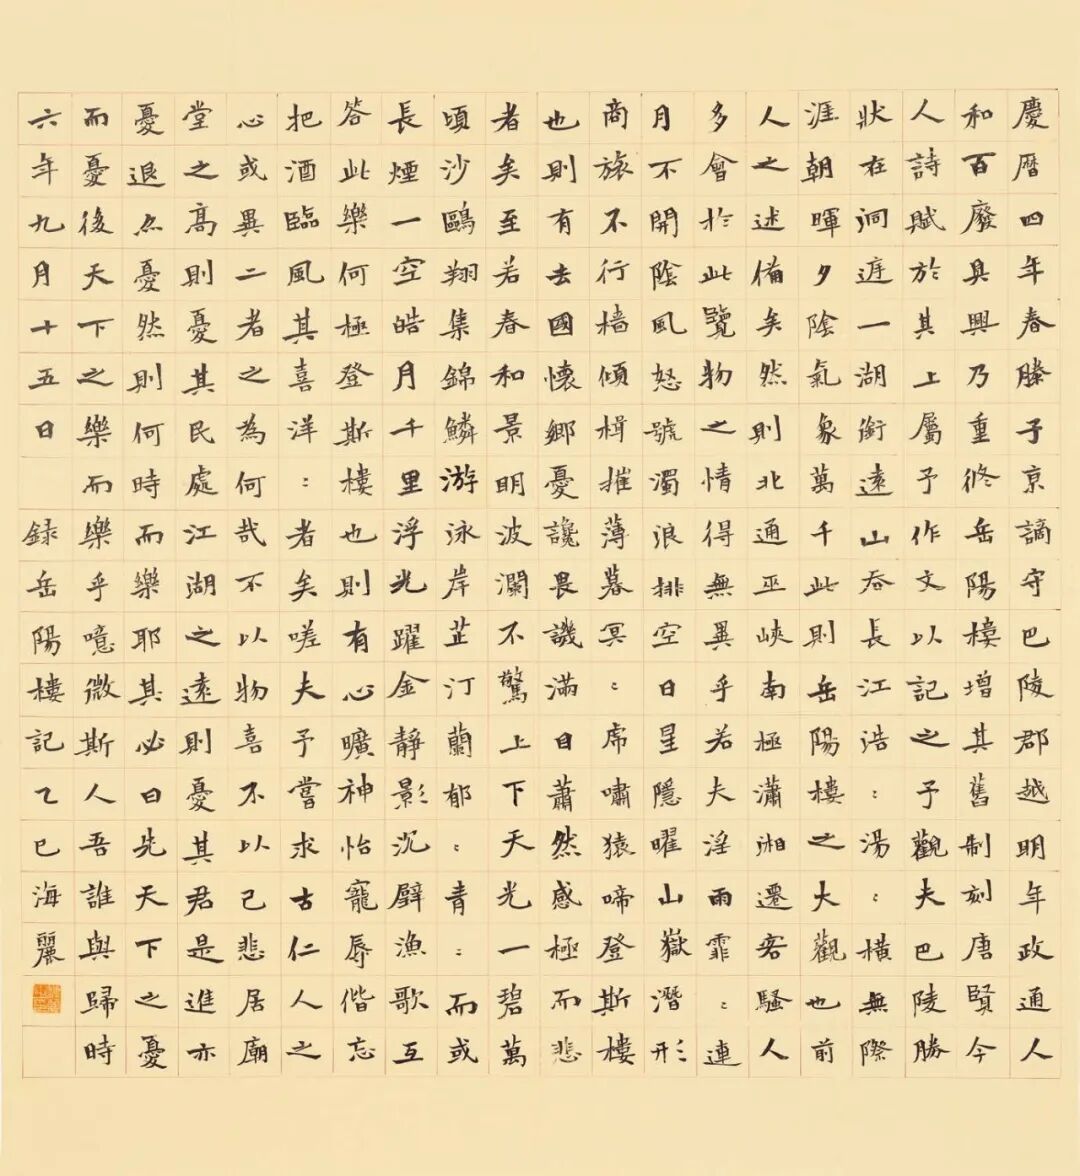 慶曆四年春滕子京謫守巴陵郡越明年政通人
和百廢具興乃重修岳陽樓增其舊制刻唐賢今
人詩賦於其上屬予作文以記之予觀夫巴陵勝
狀在洞庭一湖銜遠山吞長江浩：湯：橫無際
涯朝暉夕陰氣象萬千此則岳陽樓之大觀也前
人之述備矣然則北通巫峽南極瀟湘遷客騷人
多會於此覽物之情得無異乎若夫淫雨霏：連
月不開陰風怒號濁浪排空日星隱曜山嶽潛形
商旅不行檣傾楫摧薄暮冥：虎嘯猿啼登斯樓
也則有去國懷鄉憂讒畏譏滿目蕭然感極而悲
者矣至若春和景明波瀾不驚上下天光一碧萬
頃沙鷗翔集錦鱗游泳岸芷汀蘭郁：青：而或
長煙一空皓月千里浮光躍金靜影沉璧漁歌互
答此樂何極登斯樓也則有心曠神怡寵辱偕忘
把酒臨風其喜洋：者矣嗟夫予嘗求古仁人之
心或異二者之為何哉不以物喜不以己悲居廟
堂之高則憂其民處江湖之遠則憂其君是進亦
憂退亦憂然則何時而樂耶其必曰先天下之憂
而憂後天下之樂而樂乎噫微斯人吾誰與歸時
六年九月十五日 錄岳陽樓記乙巳海麗